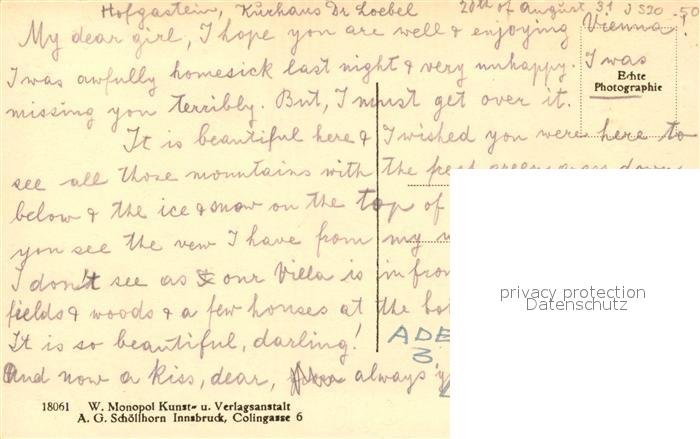 Hofgastein, Kurhaus Dr Loebel 20th of August 31 J S20 -50
My dear girl, I hope you are well & enjoying Vienna!
I was awfully homesick last night & very unhappy. I was
Echte
Photographie
missing you terribly. But, I must get over it.
It is beautiful here & I wished you were here to
see all those mountains with the green down
below & the ice & snow on the top of
you see the vew I have from my
I don't see as our Villa is in fron
fields & woods & a few houses at the bot
It is so beautiful, darling!
ADE
3
And now a kiss, dear, always y
18061 W. Monopol Kunst- u. Verlagsanstalt
A. G. Schöllhorn Innsbruck, Colingasse 6
privacy protection
Datenschutz